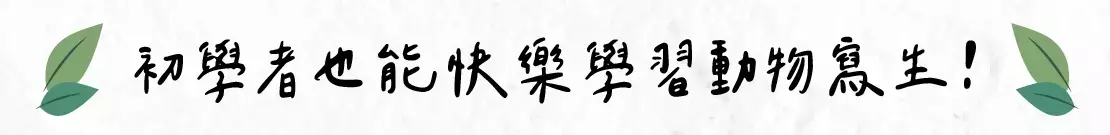 初學者也能快樂學習動物寫生!